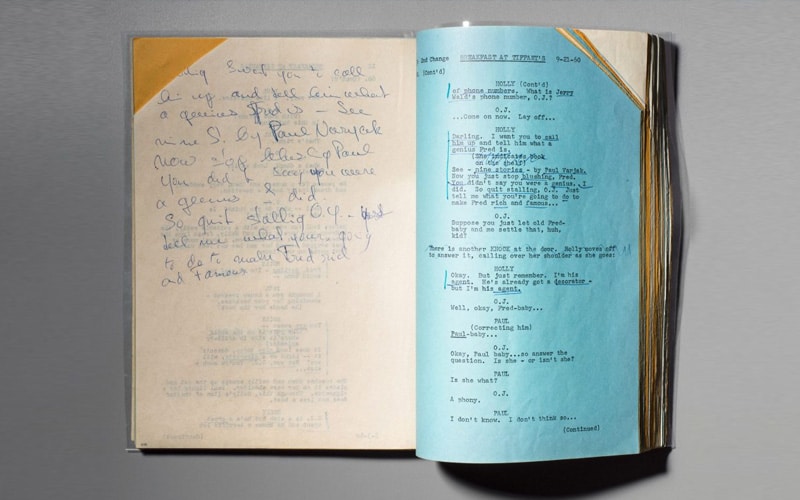 I want you to call
him up and tell him what
a genius Fred is - See
nine S. by Paul Varjak
now
You did't say you were
a genius I did.
So quit stalling O.J. - just
tell me what your going
to do to make Fred rich
and famous
2nd Change BREAKFAST AT TIFFANY'S 9-21-60
(Cont'd)
HOLLY (Cont'd)
of phone numbers. What is Jerry
Wald's phone number, O.J.?
O.J.
...Come on now. Lay off...
HOLLY
Darling. I want you to call
him up and tell him what a
genius Fred is.
(She indicates book
on the shelf)
See - nine stories - by Paul Varjak.
Now you just stop blushing, Fred.
You didn't say you were a genius. I
did. So quit stalling, O.J. Just
tell me what you're going to do to
make Fred rich and famous...
O.J.
Suppose you just let old Fred-
baby and me settle that, huh,
kid?
There is another KNOCK at the door. Holly moves off
to answer it, calling over her shoulder as she goes:
HOLLY
Okay. But just remember. I'm his
agent. He's already got a decorator -
but I'm his agent.
O.J.
Well, okay, Fred-baby...
PAUL
(Correcting him)
Paul-baby...
O.J.
Okay, Paul baby...so answer the
question. Is she - or isn't she?
PAUL
Is she what?
O.J.
A phony.
PAUL
I don't know. I don't think so...
(Continued)